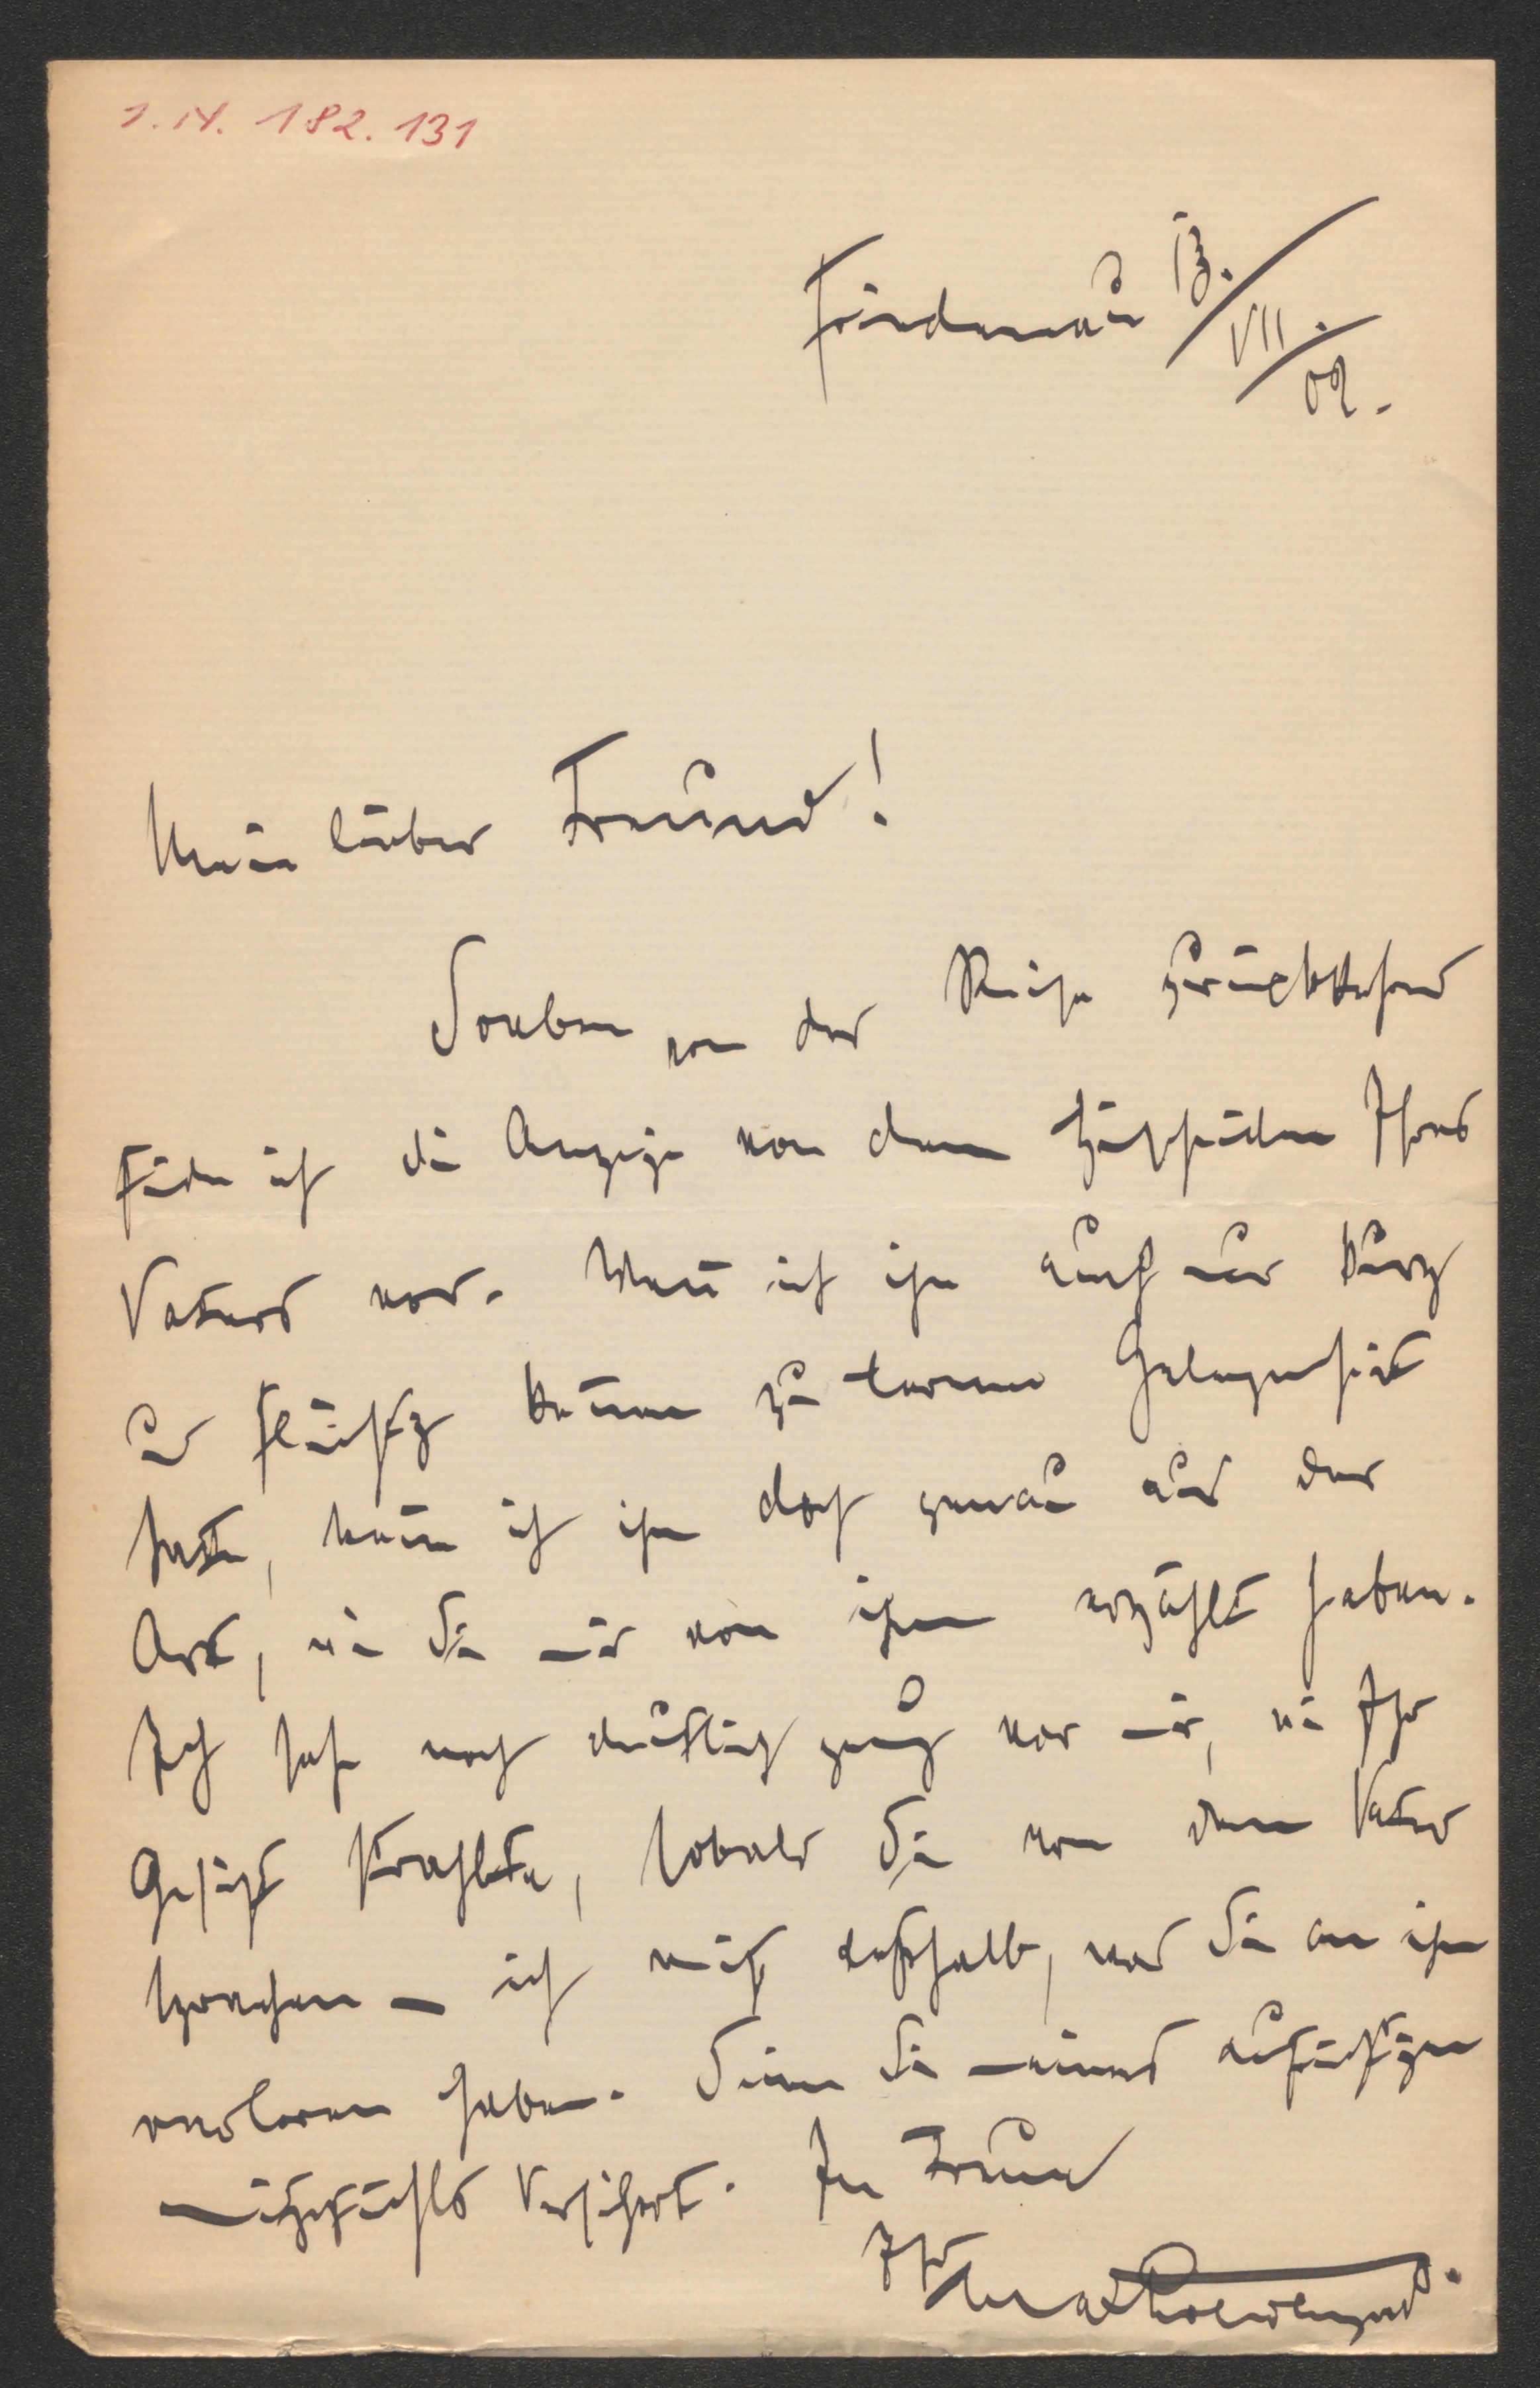 I. N. 182.131
Friedenau 13./VII./09.
Mein lieber Freund!
Soeben von der Reise zurückkehrend
finde ich die Anzeige von dem Hinscheiden Ihres
Vaters vor. Wenn ich ihn auch nur kurz
u flüchtig kennen zu lernen Gelegenheit
hatte, kenne ich ihn doch genau aus der
Art, wie Sie mir von ihm erzählt haben.
Ich sehe noch deutlich genug vor mir, wie Ihr
Gesicht strahlte, sobald Sie von dem Vater
sprachen – ich weiß deßhalb, was Sie an ihm
verloren haben. Seien Sie meines aufrichtigen
Mitgefühls versichert. In Treue
Ihr